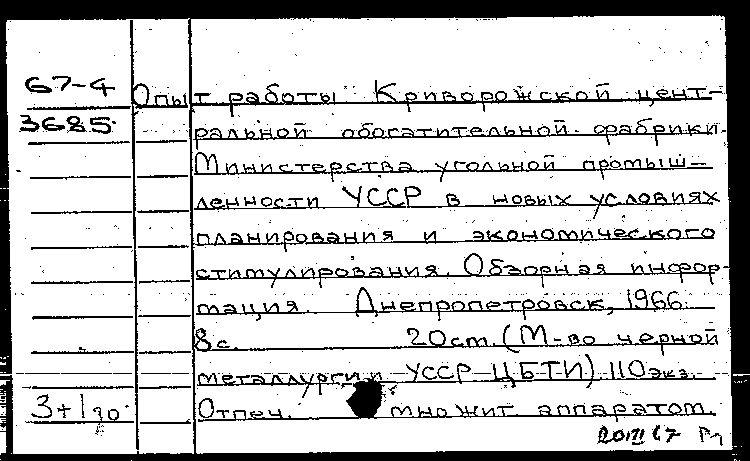 67-4 Опыт работы Криворожской цент-
3685 ральной обогатительной фабрики
Министерства угольной промыш-
ленности УССР в новых условиях
планирования и экономического
стимулирования. Обзорная инфор-
мация. Днепропетровск, 1966.
8с. 20см. (М-во черной
металлургии УССР ЦБТИ) 110 экз.
3+1 Отпеч. множит аппаратом.
67